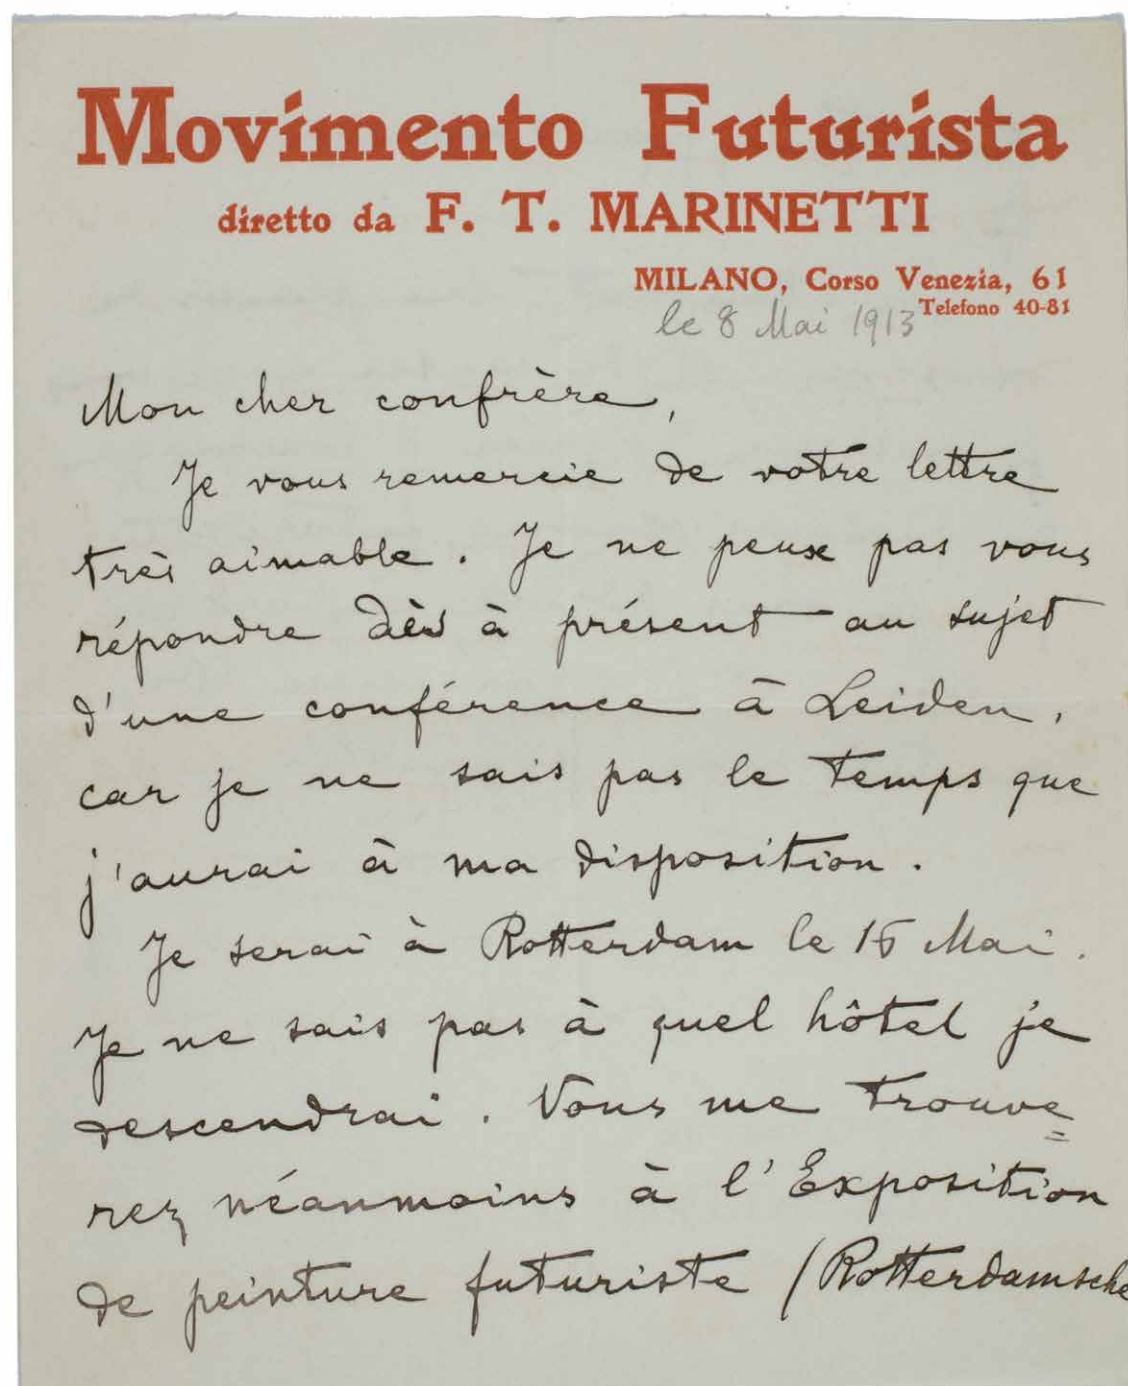 Movimento Futurista
diretto da F. T. MARINETTI
MILANO, Corso Venezia, 61
Telefono 40-81
le 8 Mai 1913
Mon cher confrère,
Je vous remercie de votre lettre
très aimable. Je ne peux pas vous
répondre dès à présent au sujet
d'une conférence à Leiden,
car je ne sais pas le temps que
j'aurai à ma disposition.
Je serai à Rotterdam le 15 Mai.
Je ne sais pas à quel hôtel je
descendrai. Vous me trouve=
rez néanmoins à l'Exposition
de peinture futuriste (Rotterdamsche